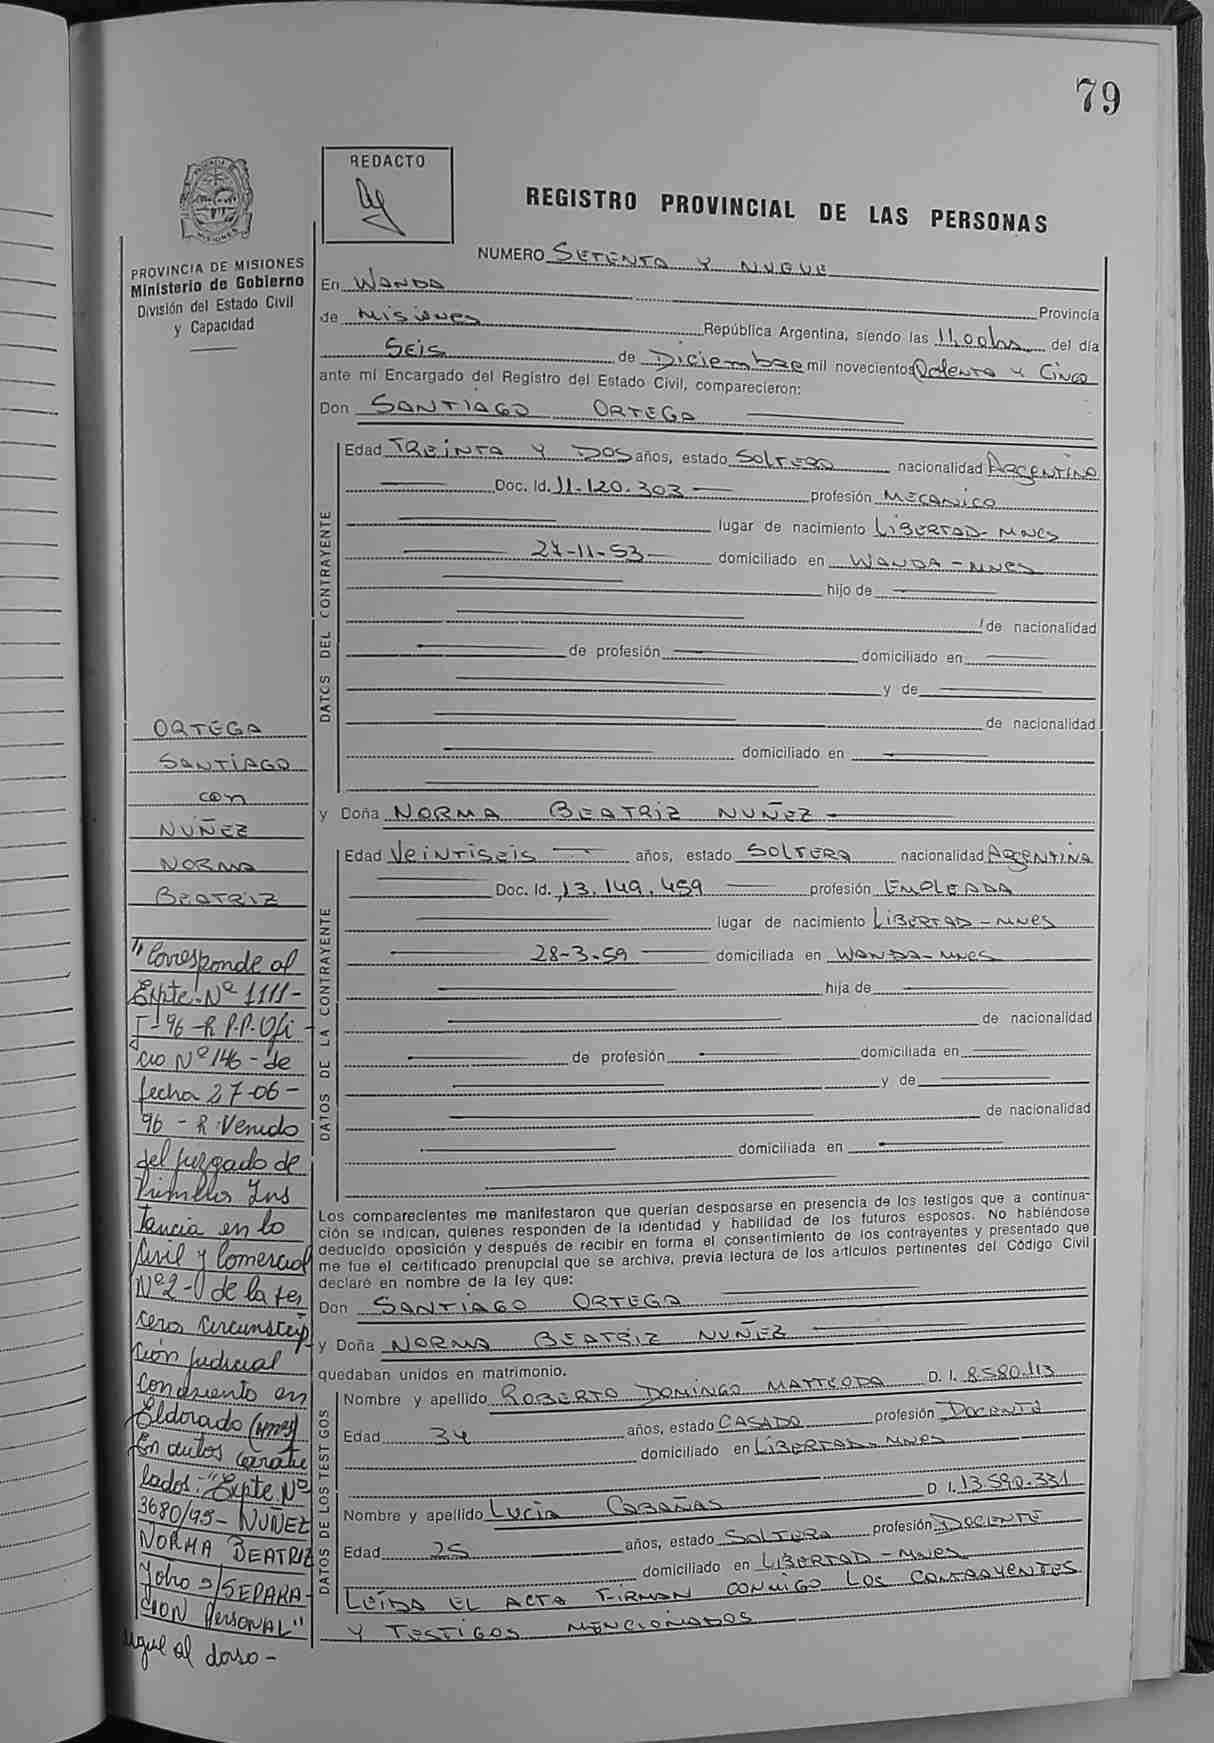 79
REDACTO
REGISTRO PROVINCIAL DE LAS PERSONAS
PROVINCIA DE MISIONES
Ministerio de Gobierno
División del Estado Civil
y Capacidad
NUMERO SETENTA Y NUEVE
En WANDA Provincia
de Misiones República Argentina, siendo las 11,00hs del día
SEIS de Diciembre mil novecientos Ochenta y Cinco
ante mí Encargado del Registro del Estado Civil, comparecieron:
Don SANTIAGO ORTEGA
DATOS DEL CONTRAYENTE
Edad TREINTA Y DOS años, estado SOLTERO nacionalidad ARGENTINO
Doc. Id. 11.120.303 profesión MECANICO
lugar de nacimiento LIBERTAD-MNES
27-11-53 domiciliado en WANDA-MNES
hijo de
de nacionalidad
de profesión domiciliado en
y de
de nacionalidad
domiciliado en
y Doña NORMA BEATRIZ NUÑEZ
DATOS DE LA CONTRAYENTE
Edad VEINTISEIS años, estado SOLTERA nacionalidad ARGENTINA
Doc. Id. 13.149.459 profesión EMPLEADA
lugar de nacimiento LIBERTAD-MNES
28-3-59 domiciliada en WANDA-MNES
hija de
de nacionalidad
de profesión domiciliada en
y de
de nacionalidad
domiciliada en
Los comparecientes me manifestaron que querían desposarse en presencia de los testigos que a continua-
ción se indican, quienes responden de la identidad y habilidad de los futuros esposos. No habiéndose
deducido oposición y después de recibir en forma el consentimiento de los contrayentes y presentado que
me fue el certificado prenupcial que se archiva, previa lectura de los artículos pertinentes del Código Civil
declaré en nombre de la ley que:
Don SANTIAGO ORTEGA
y Doña NORMA BEATRIZ NUÑEZ
quedaban unidos en matrimonio.
DATOS DE LOS TESTIGOS
Nombre y apellido ROBERTO DOMINGO D. I. 8.580.113
Edad 34 años, estado CASADO profesión DOCENTE
domiciliado en LIBERTAD-MNES
Nombre y apellido LUCIA CABAÑAS D. I. 13.590.331
Edad 25 años, estado SOLTERA profesión DOCENTE
domiciliado en LIBERTAD-MNES
LEIDA EL ACTA FIRMAN CONMIGO LOS CONTRAYENTES
Y TESTIGOS MENCIONADOS
ORTEGA
SANTIAGO
con
NUÑEZ
NORMA
BEATRIZ
"Corresponde al
Expte. Nº 1111-
I-96-R.P.P. Ofi
cio Nº 146- de
fecha 27-06-
96 - R. Venido
del juzgado de
Primera Ins
tancia en lo
Civil y Comercial
Nº 2- de la ter
cera Circunscrip
ción judicial
con asiento en
Eldorado (Mnes)
En autos caratu
lados: "Expte. Nº
3680/95- NUÑEZ
NORMA BEATRIZ
y otro s/SEPARA-
CION Personal"
sigue al dorso-